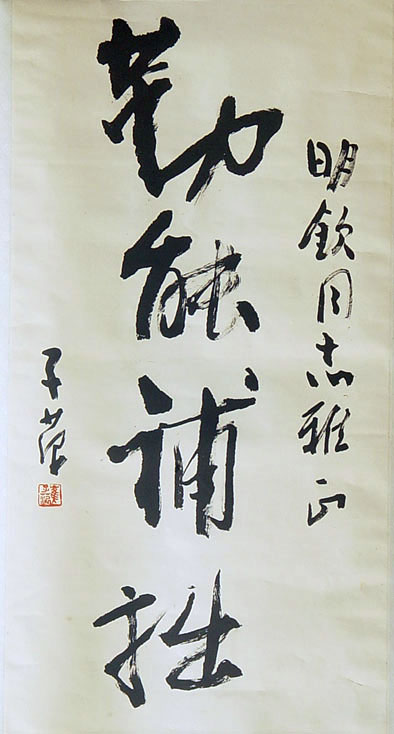 明钦同志雅正
勤能補拙
子